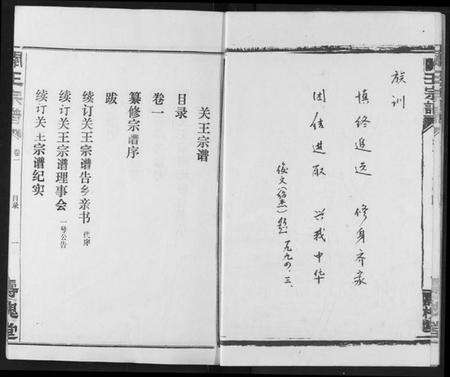 族训
慎终追远 修身齐家
团结进取 兴我中华
一九九四.三.
关王宗谱
目录
卷一
纂修宗谱序
跋
续订关王宗谱告乡亲书 代序
续订关王宗谱理事会 一号公告
续订关王宗谱纪实
关王宗谱 卷一 目录 一